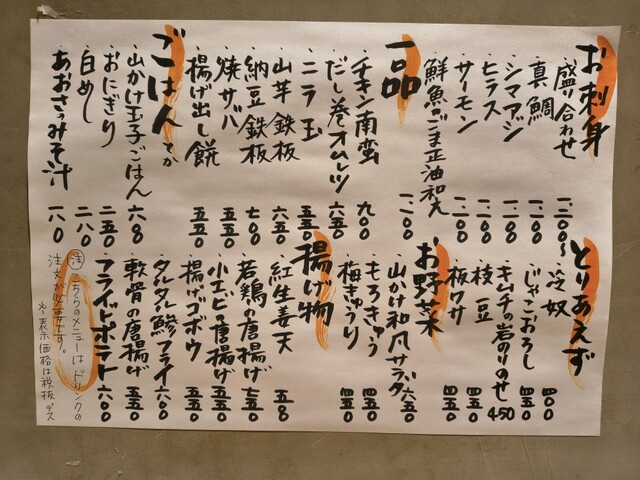 お刺身
・盛り合わせ 一二〇〇〜
・真鯛 一一〇〇
・シマアジ 一一〇〇
・ヒラス 一一〇〇
・サーモン 一一〇〇
・鮮魚ごま正油和え 一一〇〇
一品
・チキン南蛮 九〇〇
・だし巻オムレツ 六五〇
・ニラ玉 五五〇
・山芋鉄板 六五〇
・納豆鉄板 七〇〇
・焼ザバ 五五〇
・揚げ出し餅 五五〇
ごはんとか
・山かけ玉子ごはん 六八〇
・おにぎり 二五〇
・白めし 二八〇
・あおさのみそ汁 一八〇
とりあえず
・冷奴 四〇〇
・じゃこおろし 四五〇
・キムチの岩のりのせ 450
・枝豆 四五〇
・板ワサ 四五〇
お野菜
・山かけ和風サラダ 六五〇
・もろきゅう 四五〇
・梅きゅうり 四五〇
揚げ物
・紅生姜天 五八〇
・若鶏の唐揚げ 七五〇
・小エビの唐揚げ 五五〇
・揚げゴボウ 五五〇
・タルタル鯵フライ 六〇〇
・軟骨の唐揚げ 五五〇
・フライドポテト 六〇〇
注 こちらのメニューはドリンクの
注文が必要です。
※表示価格は税抜デス